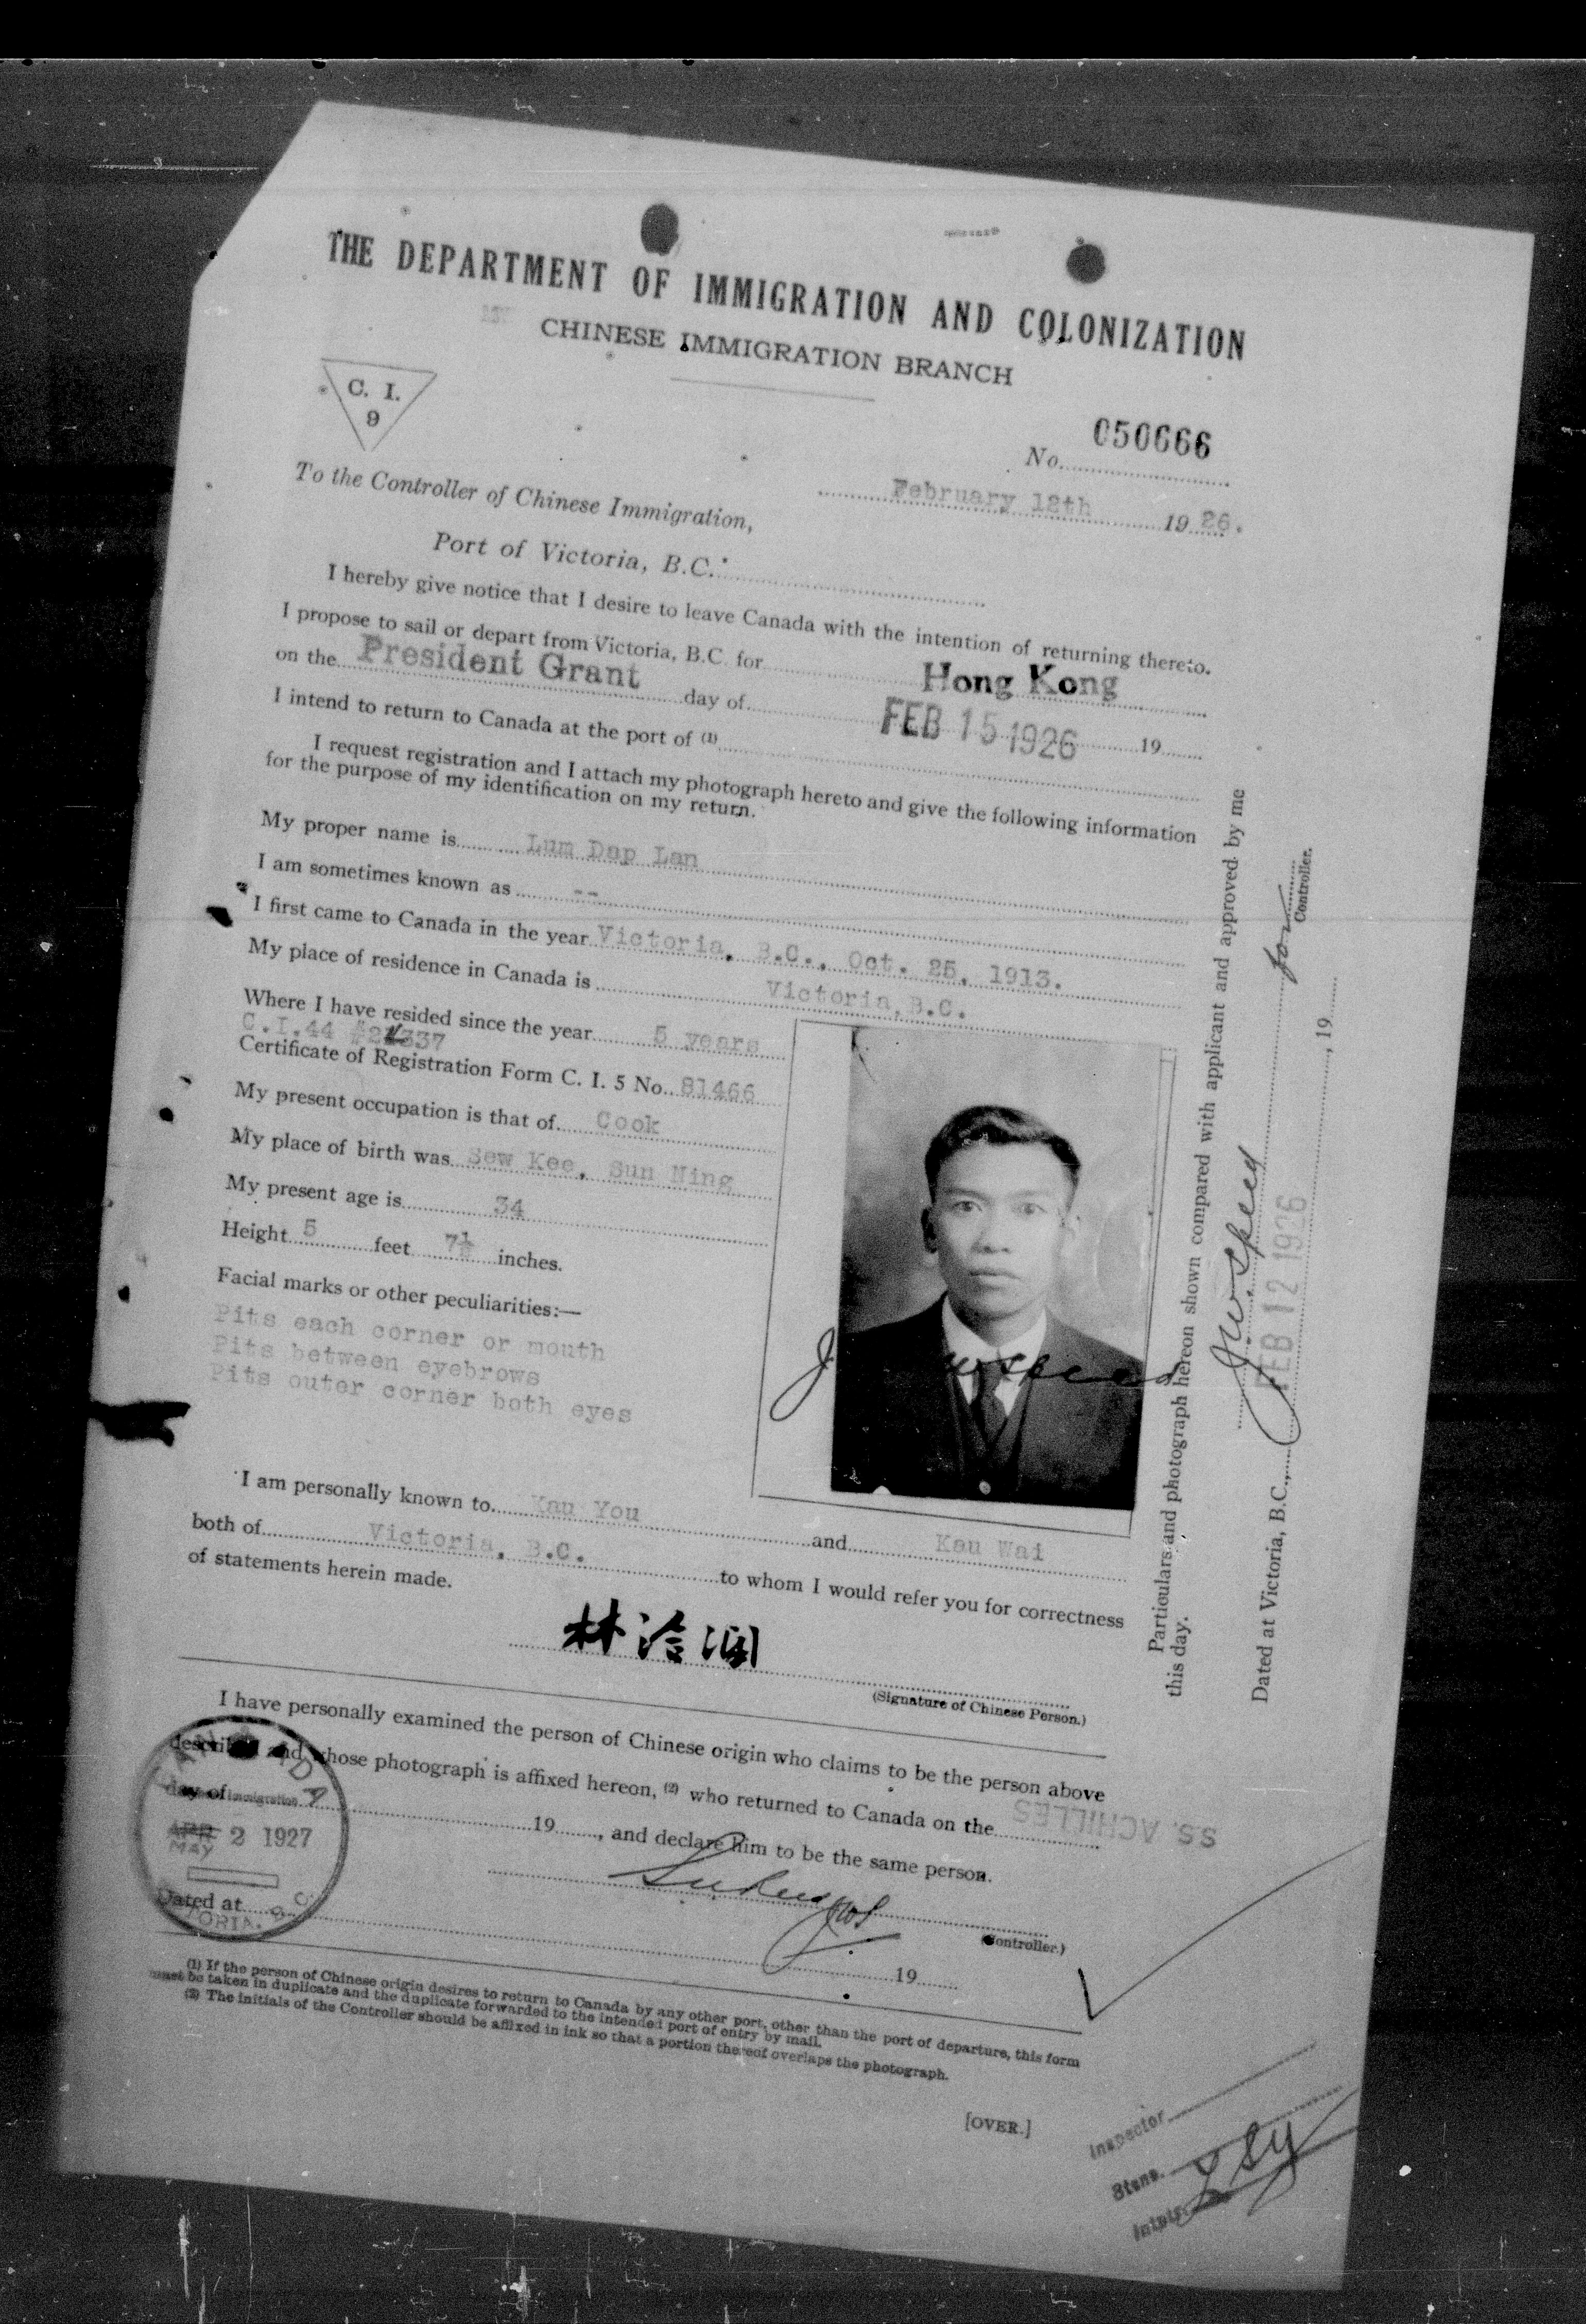 THE DEPARTMENT OF IMMIGRATION AND COLONIZATION
CHINESE IMMIGRATION BRANCH
C. I.
9
No. 050666
To the Controller of Chinese Immigration,
February 12th 1926.
Port of Victoria, B.C.
I hereby give notice that I desire to leave Canada with the intention of returning thereto.
I propose to sail or depart from Victoria, B.C. for Hong Kong
on the President Grant day of FEB 15 1926 19
I intend to return to Canada at the port of (1)
I request registration and I attach my photograph hereto and give the following information
for the purpose of my identification on my return.
My proper name is Lum Dap Lan
I am sometimes known as --
I first came to Canada in the year Victoria, B.C., Oct. 25, 1913.
My place of residence in Canada is Victoria, B.C.
Where I have resided since the year 5 years
C.I.44
Certificate of Registration Form C. I. 5 No. 81466
My present occupation is that of Cook
My place of birth was Sew Kee, Sun Ning
My present age is 34
Height 5 feet 7½ inches.
Facial marks or other peculiarities:—
Pits each corner or mouth
Pits between eyebrows
Pits outer corner both eyes
I am personally known to Kau You and Kau Wai
both of Victoria, B.C. to whom I would refer you for correctness
of statements herein made.
林洽润
(Signature of Chinese Person.)
I have personally examined the person of Chinese origin who claims to be the person above
described and whose photograph is affixed hereon, (2) who returned to Canada on the S.S. ACHILLES
day of 19 , and declare him to be the same person.
(Controller.)
Dated at 19
CANADA
Immigration
APR 2 1927
MAY
VICTORIA, B.C.
(1) If the person of Chinese origin desires to return to Canada by any other port, other than the port of departure, this form
must be taken in duplicate and the duplicate forwarded to the intended port of entry by mail.
(2) The initials of the Controller should be affixed in ink so that a portion thereof overlaps the photograph.
[OVER.]
Particulars and photograph hereon shown compared with applicant and approved by me
this day.
for Controller.
Dated at Victoria, B.C., FEB 12 1926, 19
Inspector
Steno.
Intptr.